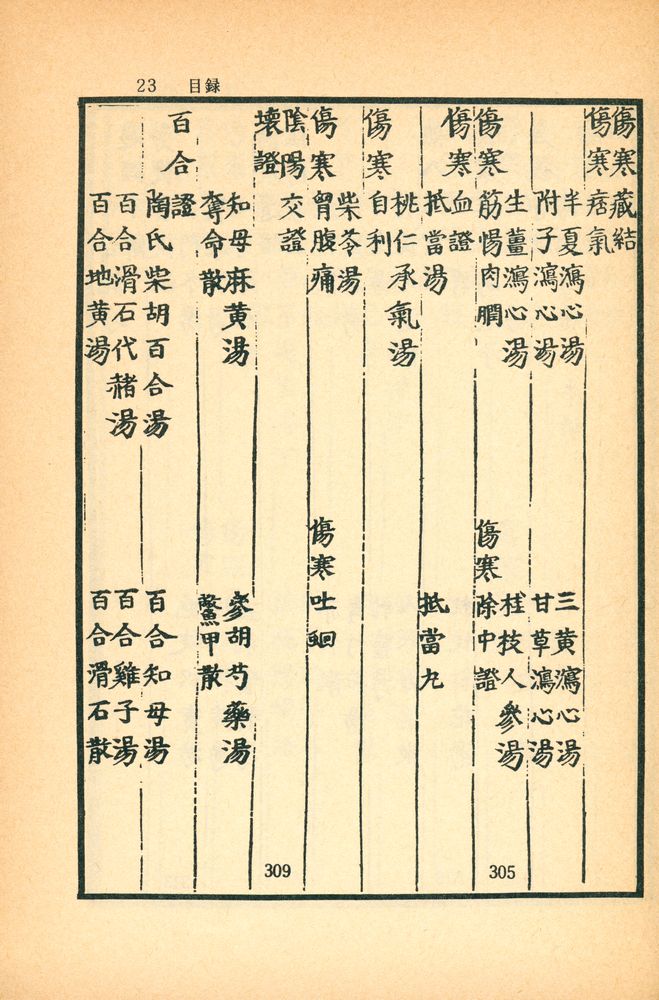 23 目録
傷寒藏結
傷寒痞氣
半夏瀉心湯
三黄瀉心湯
附子瀉心湯
甘草瀉心湯
生薑瀉心湯
桂枝人參湯
傷寒筋惕肉瞤
傷寒除中證
305
傷寒血證
抵當湯
抵當九
桃仁承氣湯
傷寒自利
柴苓湯
傷寒胃腹痛
傷寒吐蛔
陰陽交證
309
壞證
知母麻黄湯
參胡芍藥湯
奪命散
鱉甲散
百合證
陶氏柴胡百合湯
百合知母湯
百合滑石代赭湯
百合雞子湯
百合地黄湯
百合滑石散